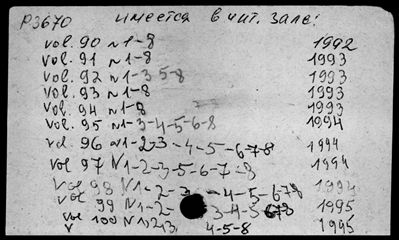 P3670 имеется в чит. зале:
vol. 90 N1-8 1992
vol. 91 N1-8 1993
vol. 92 N1-3-5-8 1993
vol. 93 N1-8 1993
vol. 94 N1-8 1993
vol. 95 N1-3-4-5-6-8 1994
vol. 96 N1-2-3-4-5-6-7-8 1994
vol 97 N1-2-3-5-6-7-8 1994
vol 98 N1-2-3-4-5-6-7-8 1994
vol 99 N1-2-3-4-5-678 1995
vol 100 N1,2,3, 4-5-8 1995